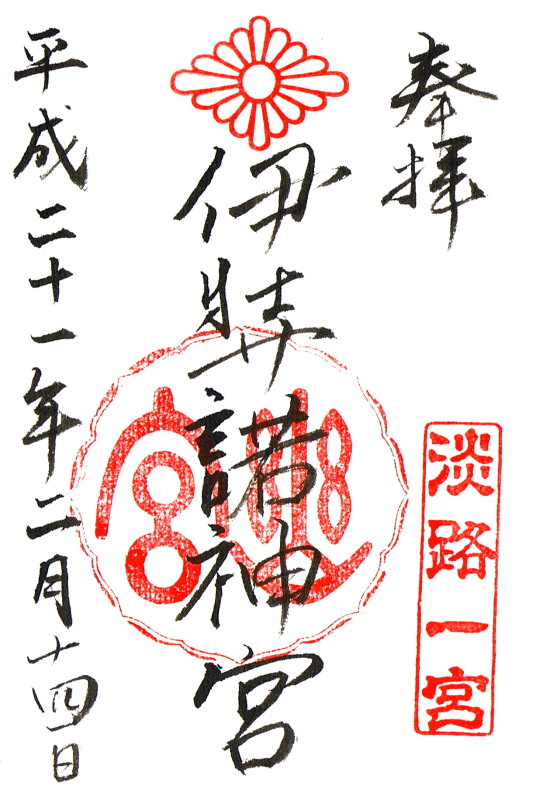 奉拝
淡路一宮
伊弉諾神宮
平成二十一年二月十四日